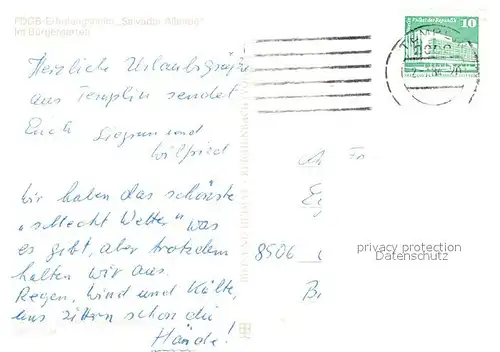 FDGB-Erholungsheim „Salvador Allende"
Im Bürgergarten
Herzliche Urlaubsgrüße
aus Templin sendet
Euch Siegrun und
Wilfried
Wir haben das schönste
"schlecht Wetter" was
es gibt, aber trotzdem
halten wir aus.
Regen, Wind und Kälte,
uns zittern schon die
Hände!
10
TEMPLIN
An Fa
8506
privacy protection
Datenschutz